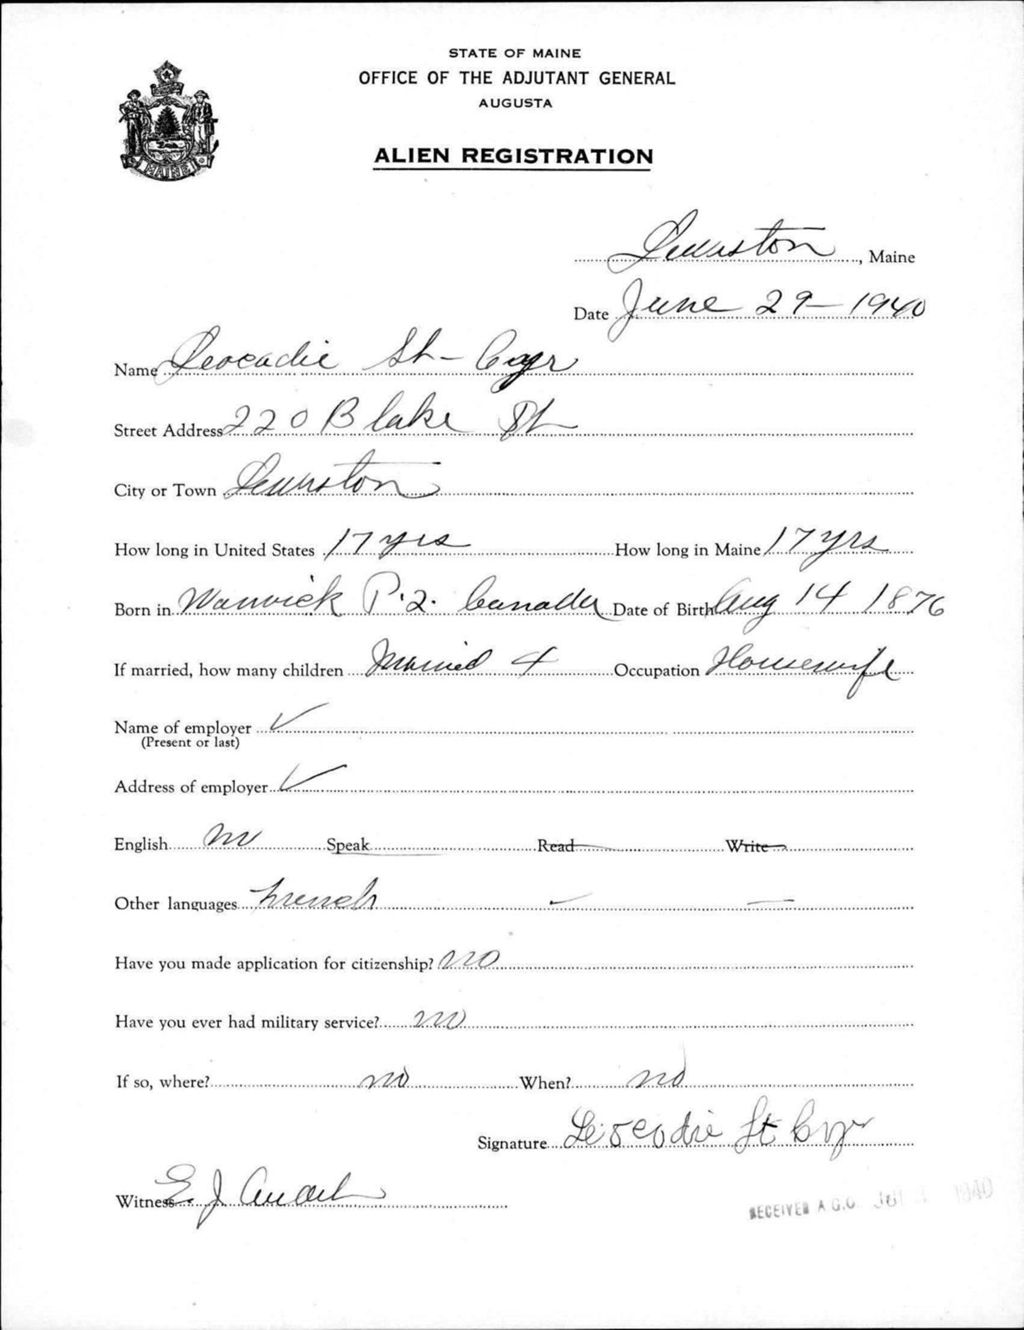 STATE OF MAINE
OFFICE OF THE ADJUTANT GENERAL
AUGUSTA
ALIEN REGISTRATION
MAINE
Lewiston, Maine
Date June 29 - 1940
Name Leocadie St- Cyr
Street Address 220 Blake St
City or Town Lewiston
How long in United States 17 yrs How long in Maine 17 yrs
Born in Warwick P.Q. Canada Date of Birth Aug 14 1876
If married, how many children Married 4 Occupation Housewife
Name of employer ✓
(Present or last)
Address of employer ✓
English no Speak Read Write
Other languages French
Have you made application for citizenship? no
Have you ever had military service? no
If so, where? no When? no
Signature Leocadie St Cyr
Witness E. J.
RECEIVED A.G.O. 1940